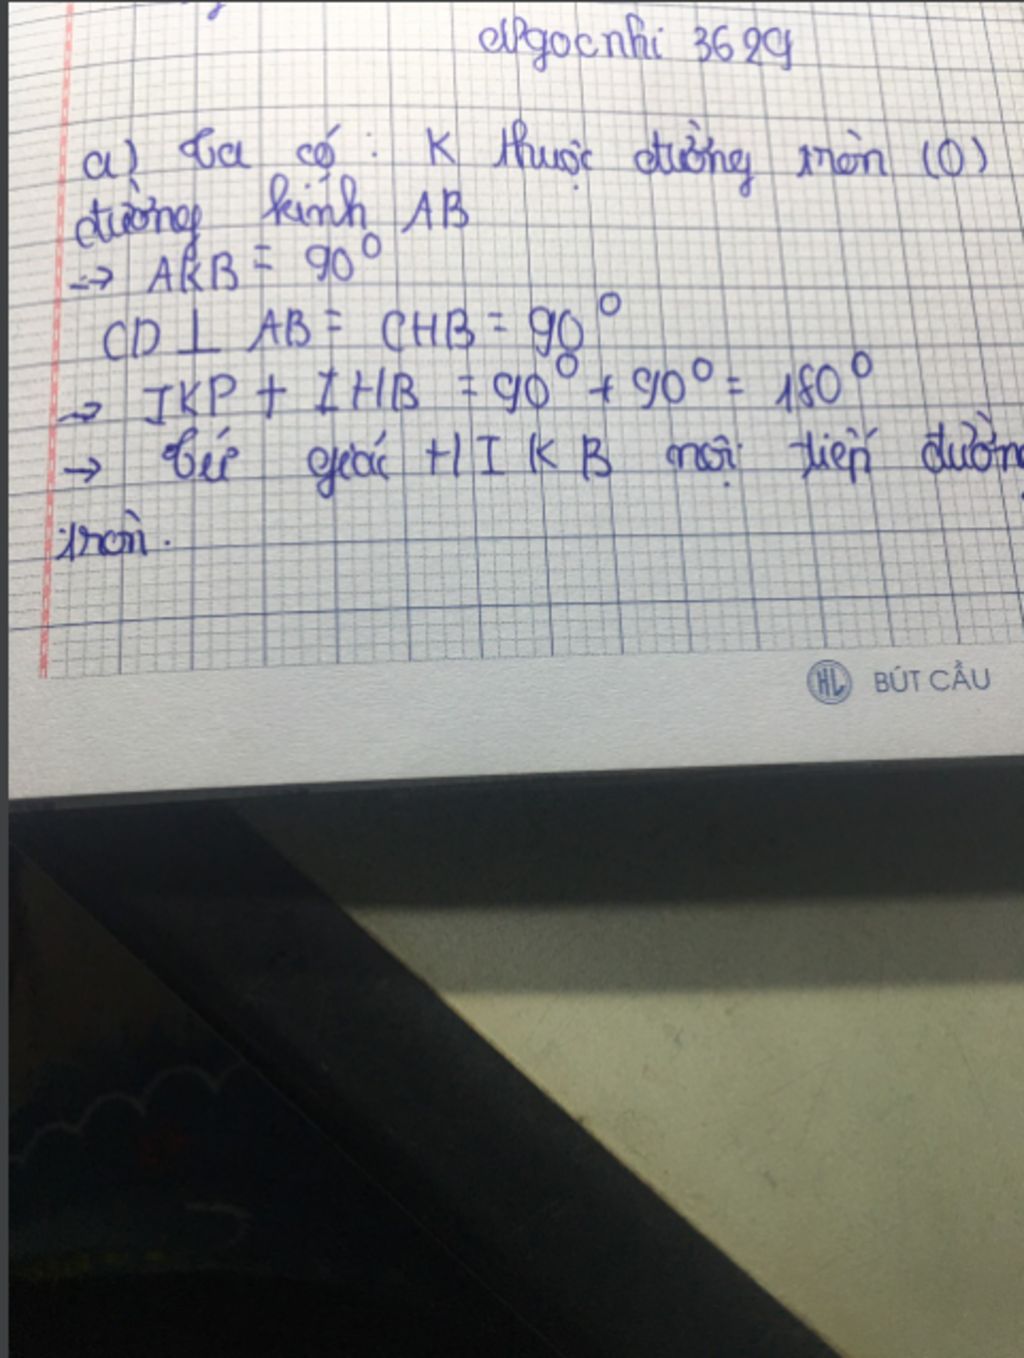 Ngọc nhi 3629
a) Ta có : K thuộc đường tròn (O)
đường kính AB
→ AKB = 90°
CD ⊥ AB = CHB = 90°
→ IKP + IHB = 90° + 90° = 180°
→ Tứ giác HIKB nội tiếp đường
tròn.
HL BÚT CẦU